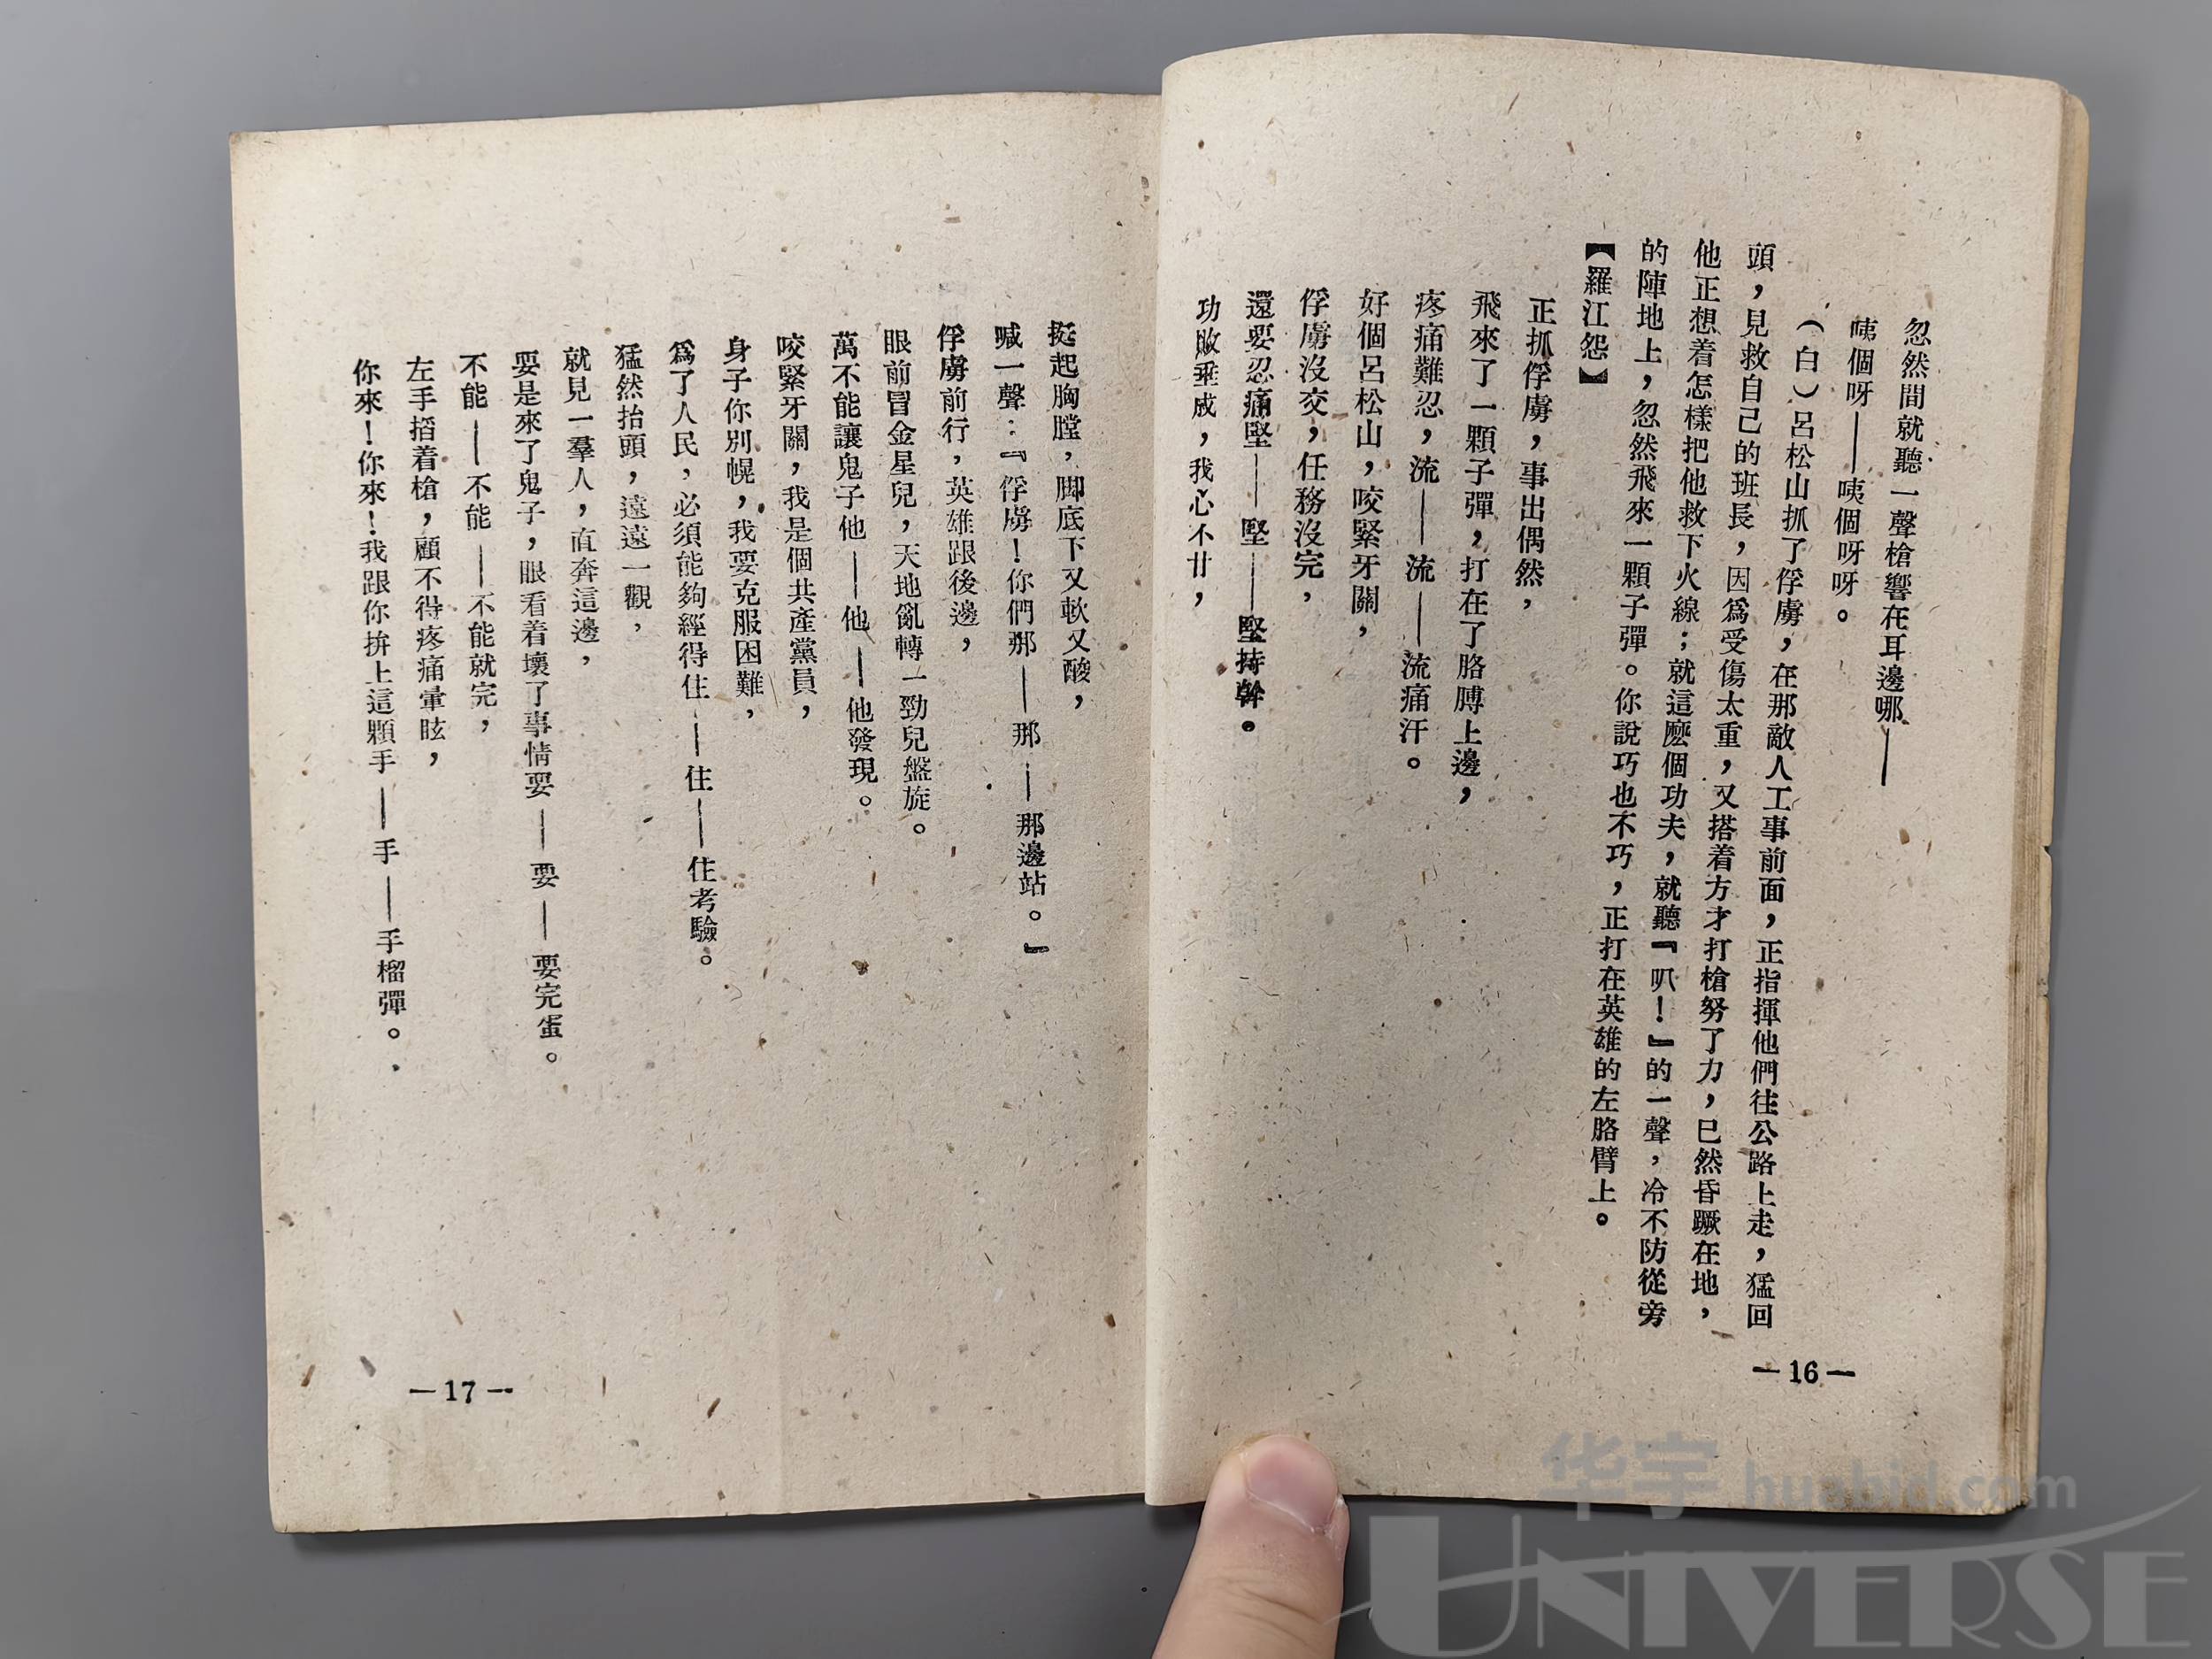 忽然間就聽一聲槍響在耳邊哪——
咦個呀——咦個呀呀。
（白）呂松山抓了俘虜，在那敵人工事前面，正指揮他們往公路上走，猛回
頭，見救自己的班長，因爲受傷太重，又搭着方才打槍努了力，已然昏蹶在地，
他正想着怎樣把他救下火線；就這麽個功夫，就聽『叭！』的一聲，冷不防從旁
的陣地上，忽然飛來一顆子彈。你說巧也不巧，正打在英雄的左胳臂上。
【羅江怨】
正抓俘虜，事出偶然，
飛來了一顆子彈，打在了胳膊上邊，
疼痛難忍，流——流——流痛汗。
好個呂松山，咬緊牙關，
俘虜沒交，任務沒完，
還要忍痛堅——堅——堅持幹。
功敗垂成，我心不甘，
—16—
挺起胸膛，脚底下又軟又酸，
喊一聲：『俘虜！你們那——那——那邊站。』
俘虜前行，英雄跟後邊，
眼前冒金星兒，天地亂轉一勁兒盤旋。
萬不能讓鬼子他——他——他發現。
咬緊牙關，我是個共產黨員，
身子你別幌，我要克服困難，
爲了人民，必須能夠經得住——住——住考驗。
猛然抬頭，遠遠一觀，
就見一羣人，直奔這邊，
要是來了鬼子，眼看着壞了事情要——要——要完蛋。
不能——不能——不能就完，
左手搭着槍，顧不得疼痛暈眩，
你來！你來！我跟你拚上這顆手——手——手榴彈。
—17—
华宇 huabid.com
UNIVERSE